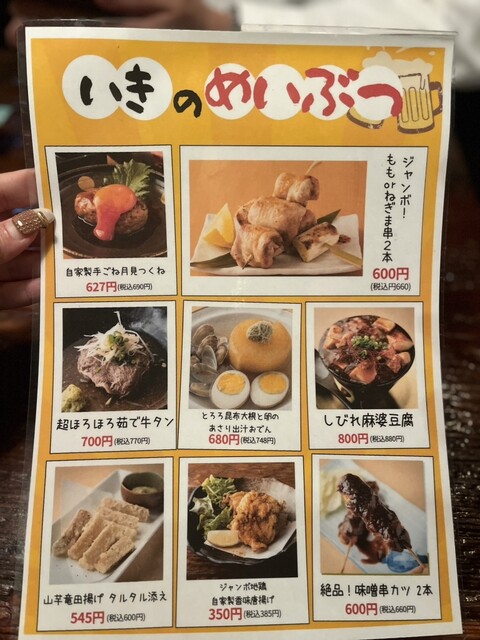 いきのめいぶつ
自家製手ごね月見つくね
627円(税込690円)
ジャンボ!
ももorねぎま串2本
600円
(税込円660)
超ほろほろ茹で牛タン
700円(税込770円)
とろろ昆布大根と卵の
あさり出汁おでん
680円(税込748円)
しびれ麻婆豆腐
800円(税込880円)
山芋竜田揚げ タルタル添え
545円(税込600円)
ジャンボ地鶏
自家製香味唐揚げ
350円(税込385円)
絶品!味噌串カツ 2本
600円(税込660円)